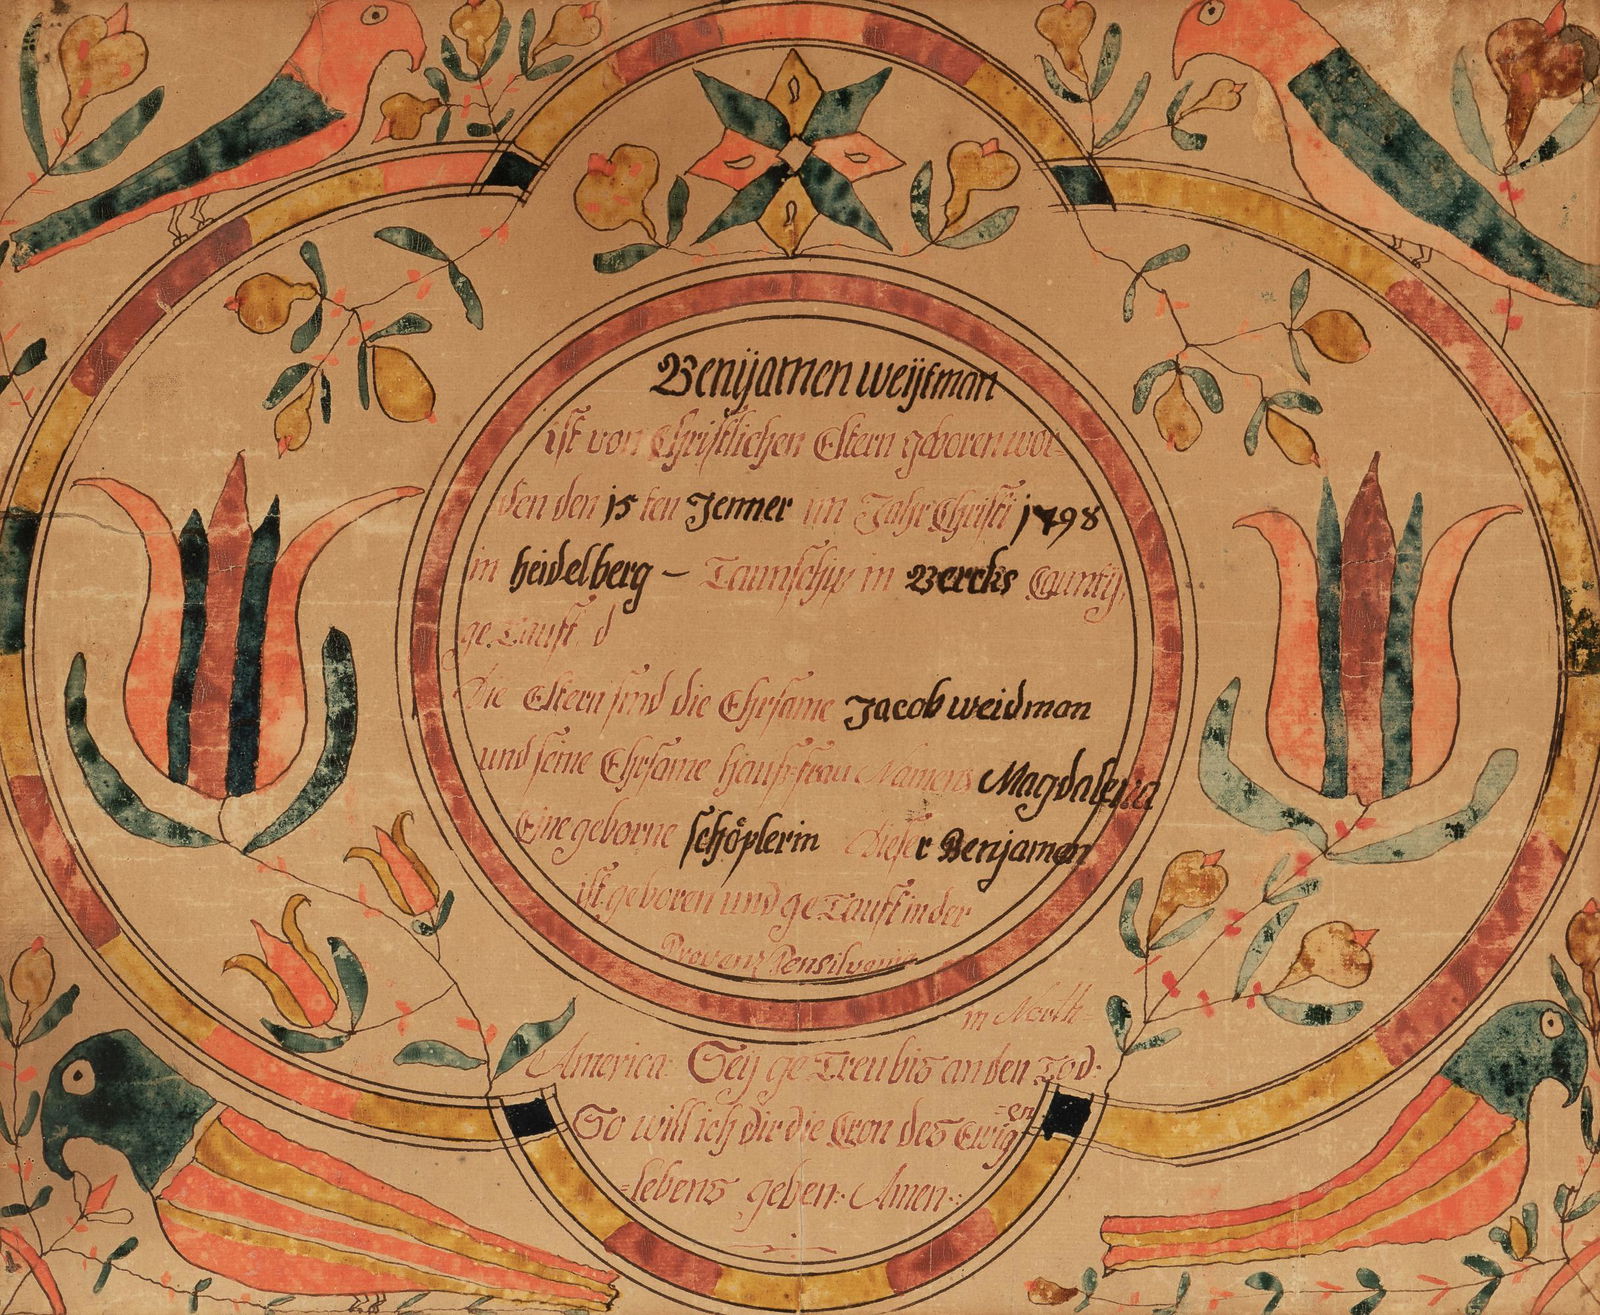 Benijamen weijtman
ist von Christlichen Eltern geboren wor-
den den 15 ten Jenner im Jahr Christi 1798
in heidelberg – Taunschip in Bercks Caunty,
ge Taufft d
Die Eltern sind die Ehrsame Jacob weidman
und seine Ehrsame hauß-frau Namens Magdalena
Eine geborne schöplerin Dieser Benjamen
ist geboren und ge Taufft in der
Provenz Pensilvania
in North-
America: Seij ge Treu bis an den Tod:
So will ich dir die Cron des Ewig-en
=lebens geben: Amen: